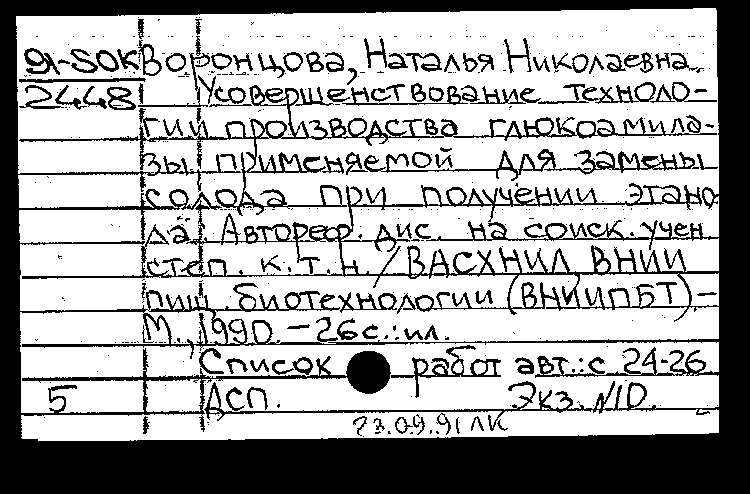 91-SOK Воронцова, Наталья Николаевна.
2448 Усовершенствование техноло-
гии производства глюкоамила-
зы, применяемой для замены
солода при получении этано
ла: Автореф. дис. на соиск. учен
степ. к.т.н. / ВАСХНИЛ, ВНИИ
пищ. биотехнологии (ВНИИПБТ) -
М., 1990. - 26с.: ил.
Список работ авт.: с 24-26
5 ДСП. Экз. N10.
23.09.91 ЛК